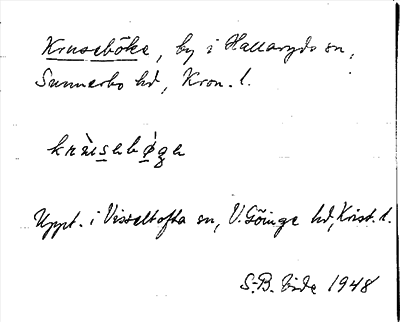 Kruseböke, by i Hallaryds sn,
Sunnerbo hd, Kron. l.
Uppt. i Visseltofta sn, V. Göinge hd, Krist. l.
S-B. 1948